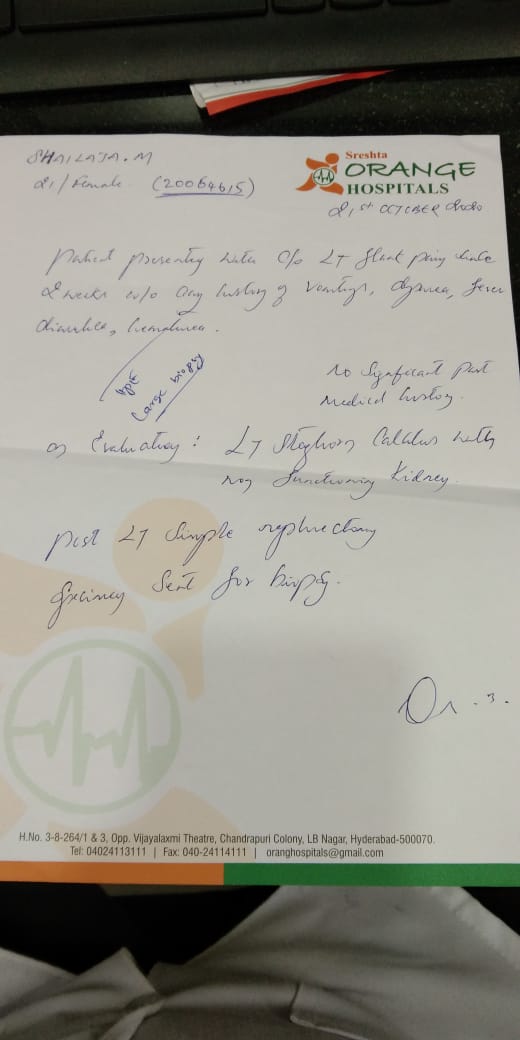 SHAILAJA.M
Sreshta
ORANGE
HOSPITALS
21/Female (20064615)
21st OCTOBER 2020
Patient presenting with c/o LT flank pain since
2 weeks w/o any history of vomitings, dysurea, fever
diarrhea, hematurea.
Large biopsy
No Significant Past
Medical history.
on Evaluation: LT Staghorn Calculus with
non functioning Kidney.
Post LT Simple nephrectomy
Sent for biopsy.
H.No. 3-8-264/1 & 3, Opp. Vijayalaxmi Theatre, Chandrapuri Colony, LB Nagar, Hyderabad-500070.
Tel: 04024113111 | Fax: 040-24114111 | oranghospitals@gmail.com